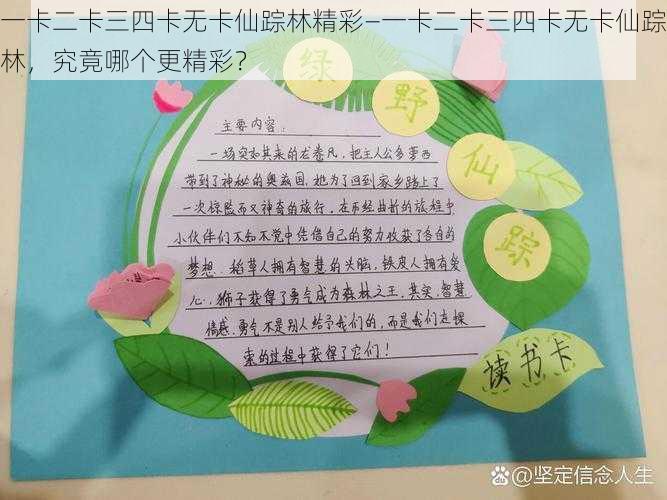 一卡二卡三四卡无卡仙踪林精彩—一卡二卡三四卡无卡仙踪
林，究竟哪个更精彩？
绿
野
仙
踪
主要内容：
一场突如其来的龙卷风，把主人公多萝西
带到了神秘的奥兹国，她为了回到家乡踏上了
一次惊险而又神奇的旅行，在历经曲折的旅程中
小伙伴们不知不觉中凭借自己的努力收获了各自的
梦想，稻草人拥有智慧的头脑，铁皮人拥有爱
心，狮子获得了勇气成为森林之王，其实，智慧
情感、勇气不是别人给予我们的，而是我们在探
索的过程中获得了它们！
读书卡
@坚定信念人生